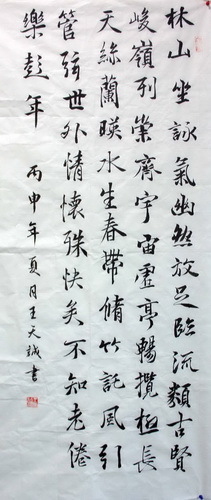 林山坐詠氣幽然放足臨流類古賢
峻嶺列崇齋宇宙虛亭暢攬極長
天絲蘭暎水生春帶脩竹託風引
管弦世外情懷殊快矣不知老倦
樂彭年
丙申年夏月王天誠書